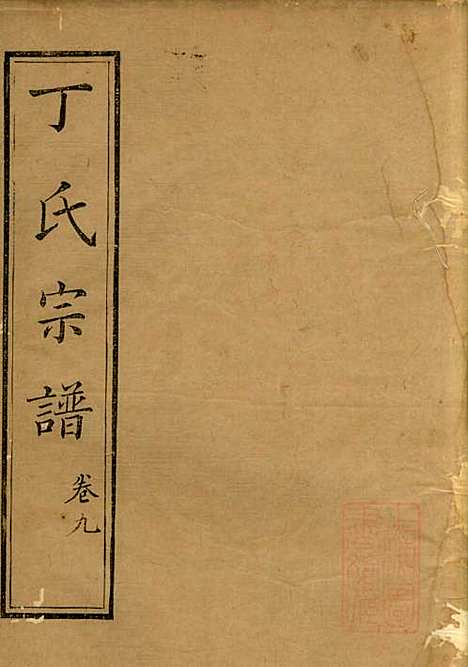 丁氏宗譜
卷九